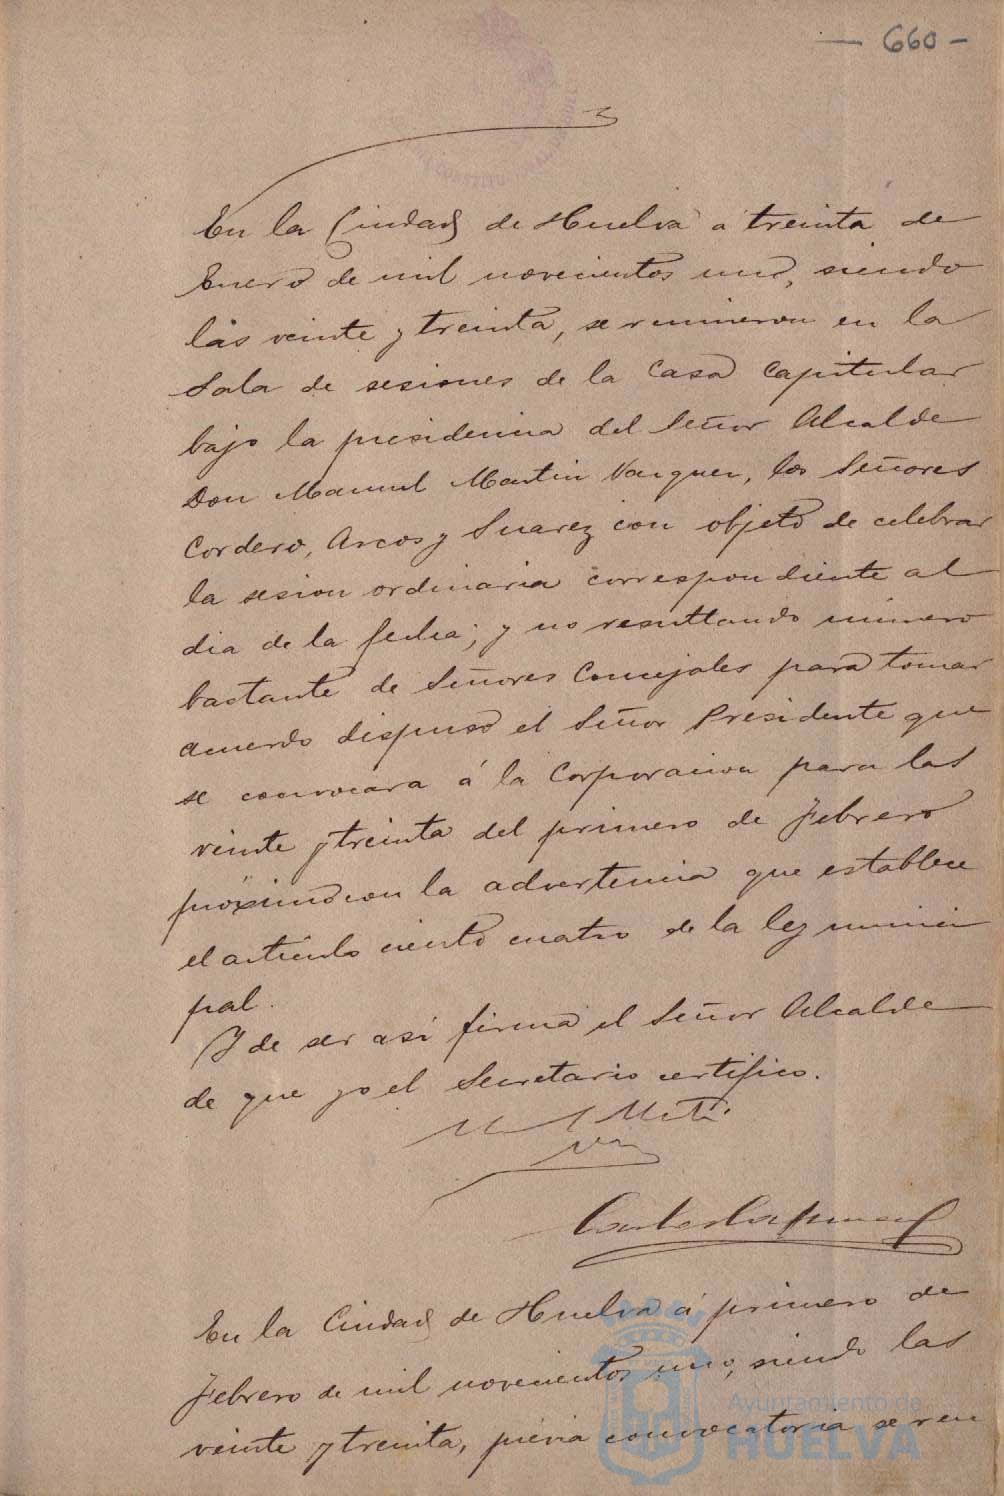 — 660 –
En la Ciudad de Huelva a treinta de
Enero de mil novecientos uno, siendo
las veinte y treinta, se reunieron en la
Sala de sesiones de la Casa Capitular
bajo la presidencia del Señor Alcalde
Don Manuel Martin Vazquez, los Señores
Cordero, Arcos y Suarez con objeto de celebrar
la sesion ordinaria correspondiente al
dia de la fecha; y no resultando número
bastante de Señores Concejales para tomar
acuerdo dispuso el Señor Presidente que
se convocara á la Corporacion para las
veinte y treinta del primero de Febrero
próximo con la advertencia que establece
el artículo ciento cuatro de la ley munici
pal.
Y de ser asi firma el Señor Alcalde
de que yo el Secretario certifico.
En la Ciudad de Huelva á primero de
Febrero de mil novecientos uno, siendo las
veinte y treinta, prévia convocatoria se reu
Ayuntamiento de
HUELVA